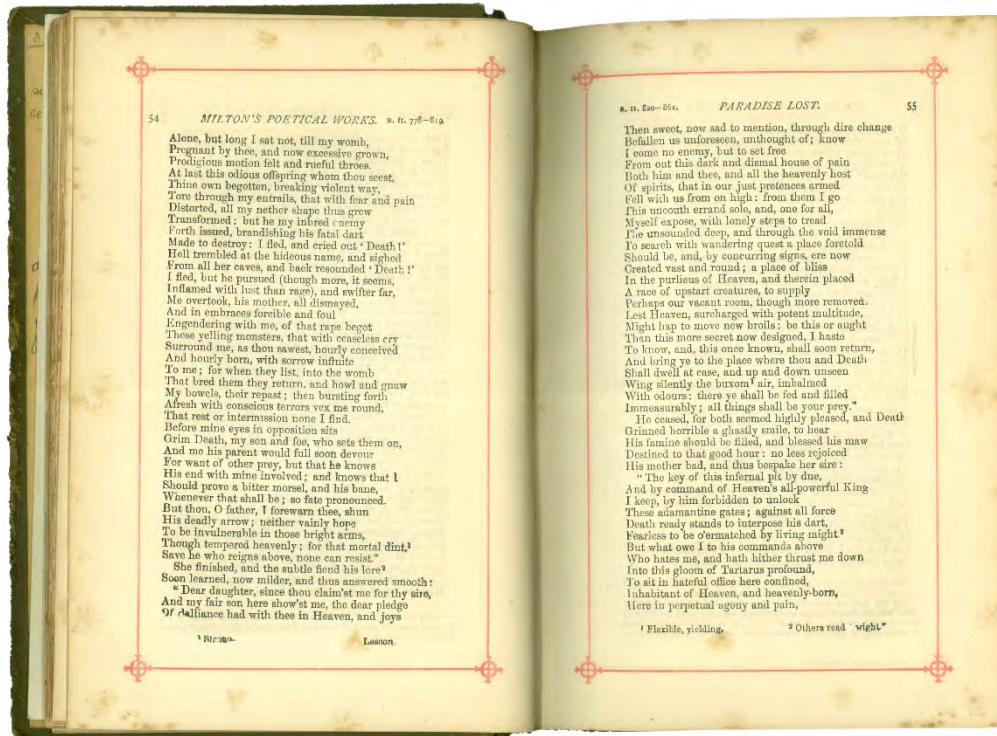 54 MILTON'S POETICAL WORKS. B. II. 778—819.
Alone, but long I sat not, till my womb,
Pregnant by thee, and now excessive grown,
Prodigious motion felt and rueful throes.
At last this odious offspring whom thou seest,
Thine own begotten, breaking violent way,
Tore through my entrails, that with fear and pain
Distorted, all my nether shape thus grew
Transformed; but he my inbred enemy
Forth issued, brandishing his fatal dart
Made to destroy: I fled, and cried out 'Death!'
Hell trembled at the hideous name, and sighed
From all her caves, and back resounded 'Death!'
I fled, but he pursued (though more, it seems,
Inflamed with lust than rage), and swifter far,
Me overtook, his mother, all dismayed,
And in embraces forcible and foul
Engendering with me, of that rape begot
These yelling monsters, that with ceaseless cry
Surround me, as thou sawest, hourly conceived
And hourly born, with sorrow infinite
To me; for when they list, into the womb
That bred them they return, and howl and gnaw
My bowels, their repast; then bursting forth
Afresh with conscious terrors vex me round,
That rest or intermission none I find.
Before mine eyes in opposition sits
Grim Death, my son and foe, who sets them on,
And me his parent would full soon devour
For want of other prey, but that he knows
His end with mine involved; and knows that I
Should prove a bitter morsel, and his bane,
Whenever that shall be; so fate pronounced.
But thou, O father, I forewarn thee, shun
His deadly arrow; neither vainly hope
To be invulnerable in those bright arms,
Though tempered heavenly; for that mortal dint,¹
Save he who reigns above, none can resist."
She finished, and the subtle fiend his lore²
Soon learned, now milder, and thus answered smooth:
"Dear daughter, since thou claim'st me for thy sire,
And my fair son here show'st me, the dear pledge
Of dalliance had with thee in Heaven, and joys
¹ Stroke. Lesson.
B. II. 820—861. PARADISE LOST. 55
Then sweet, now sad to mention, through dire change
Befallen us unforeseen, unthought of; know
I come no enemy, but to set free
From out this dark and dismal house of pain
Both him and thee, and all the heavenly host
Of spirits, that in our just pretences armed
Fell with us from on high: from them I go
This uncouth errand sole, and, one for all,
Myself expose, with lonely steps to tread
The unsounded deep, and through the void immense
To search with wandering quest a place foretold
Should be, and, by concurring signs, ere now
Created vast and round; a place of bliss
In the purlieus of Heaven, and therein placed
A race of upstart creatures, to supply
Perhaps our vacant room, though more removed.
Lest Heaven, surcharged with potent multitude,
Might hap to move new broils: be this or aught
Than this more secret now designed, I haste
To know, and, this once known, shall soon return,
And bring ye to the place where thou and Death
Shall dwell at ease, and up and down unseen
Wing silently the buxom¹ air, imbalmed
With odours: there ye shall be fed and filled
Immeasurably; all things shall be your prey."
He ceased, for both seemed highly pleased, and Death
Grinned horrible a ghastly smile, to hear
His famine should be filled, and blessed his maw
Destined to that good hour: no less rejoiced
His mother bad, and thus bespake her sire:
"The key of this infernal pit by due,
And by command of Heaven's all-powerful King
I keep, by him forbidden to unlock
These adamantine gates; against all force
Death ready stands to interpose his dart,
Fearless to be o'ermatched by living might.²
But what owe I to his commands above
Who hates me, and hath hither thrust me down
Into this gloom of Tartarus profound,
To sit in hateful office here confined,
Inhabitant of Heaven, and heavenly-born,
Here in perpetual agony and pain,
¹ Flexible, yielding. ² Others read "wight."